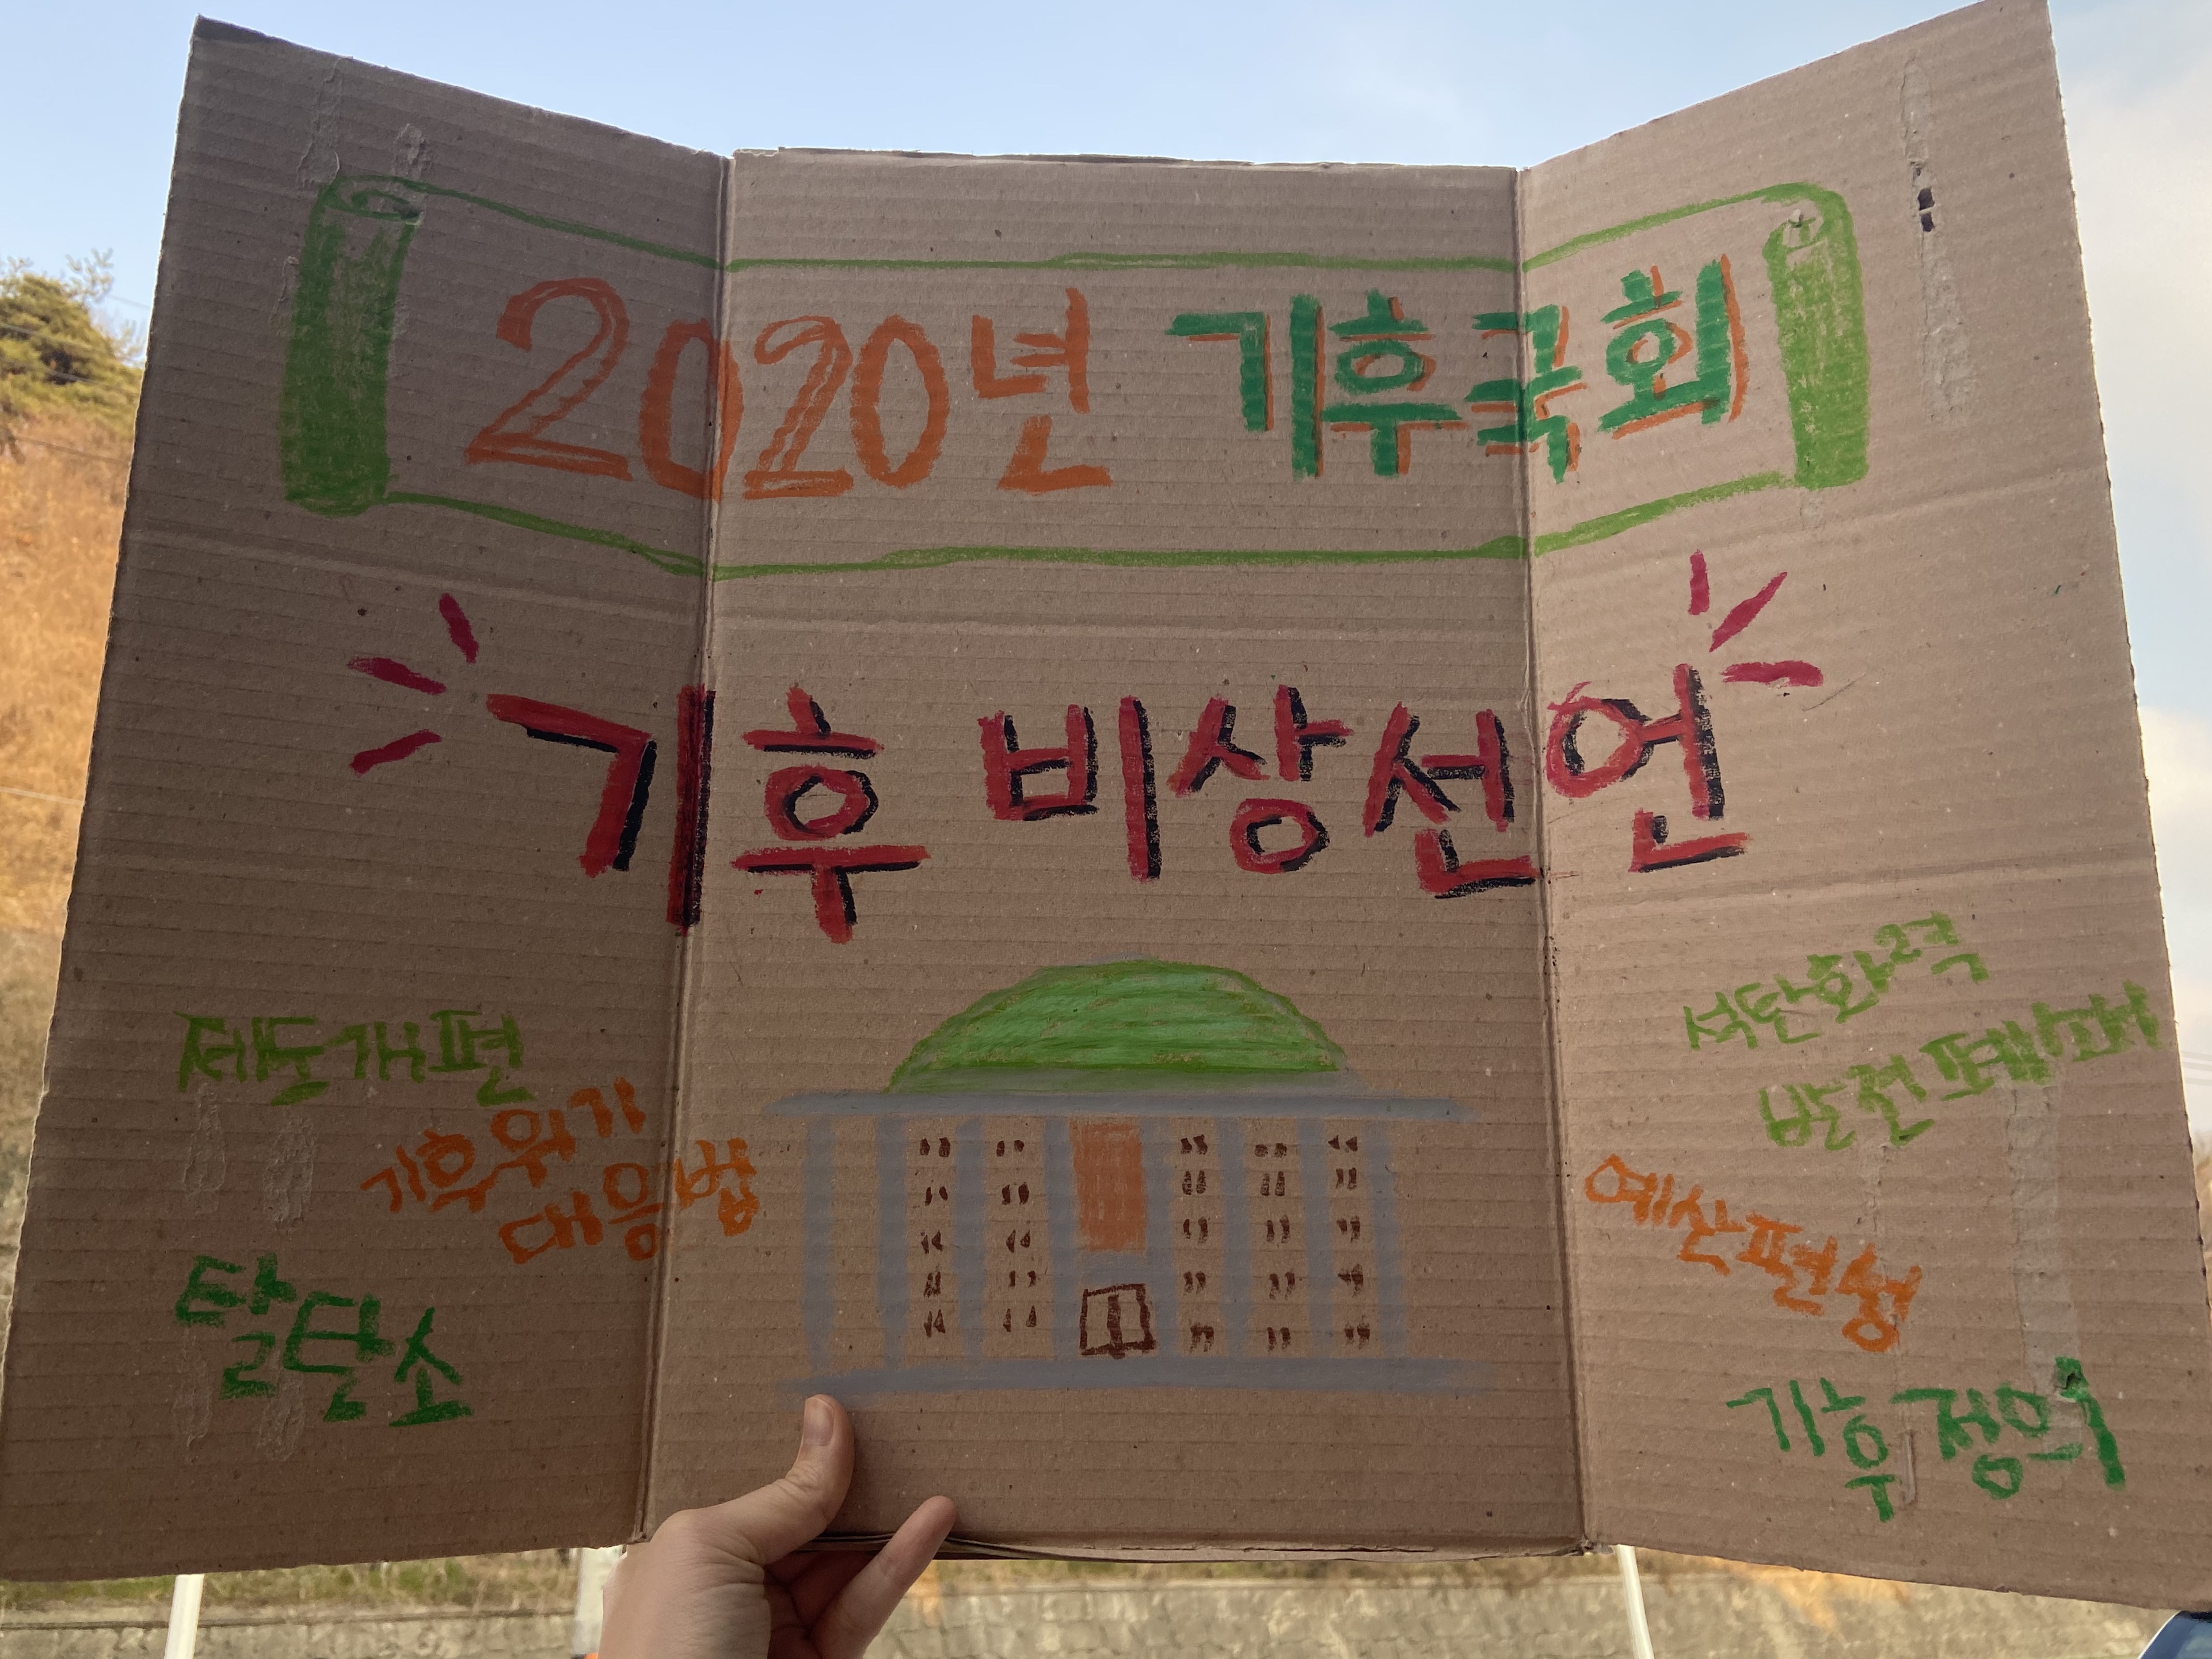 2020년 기후국회
기후 비상선언
제도개편
기후위기
대응법
탈탄소
석탄화력
발전 폐쇄
예산편성
기후정의